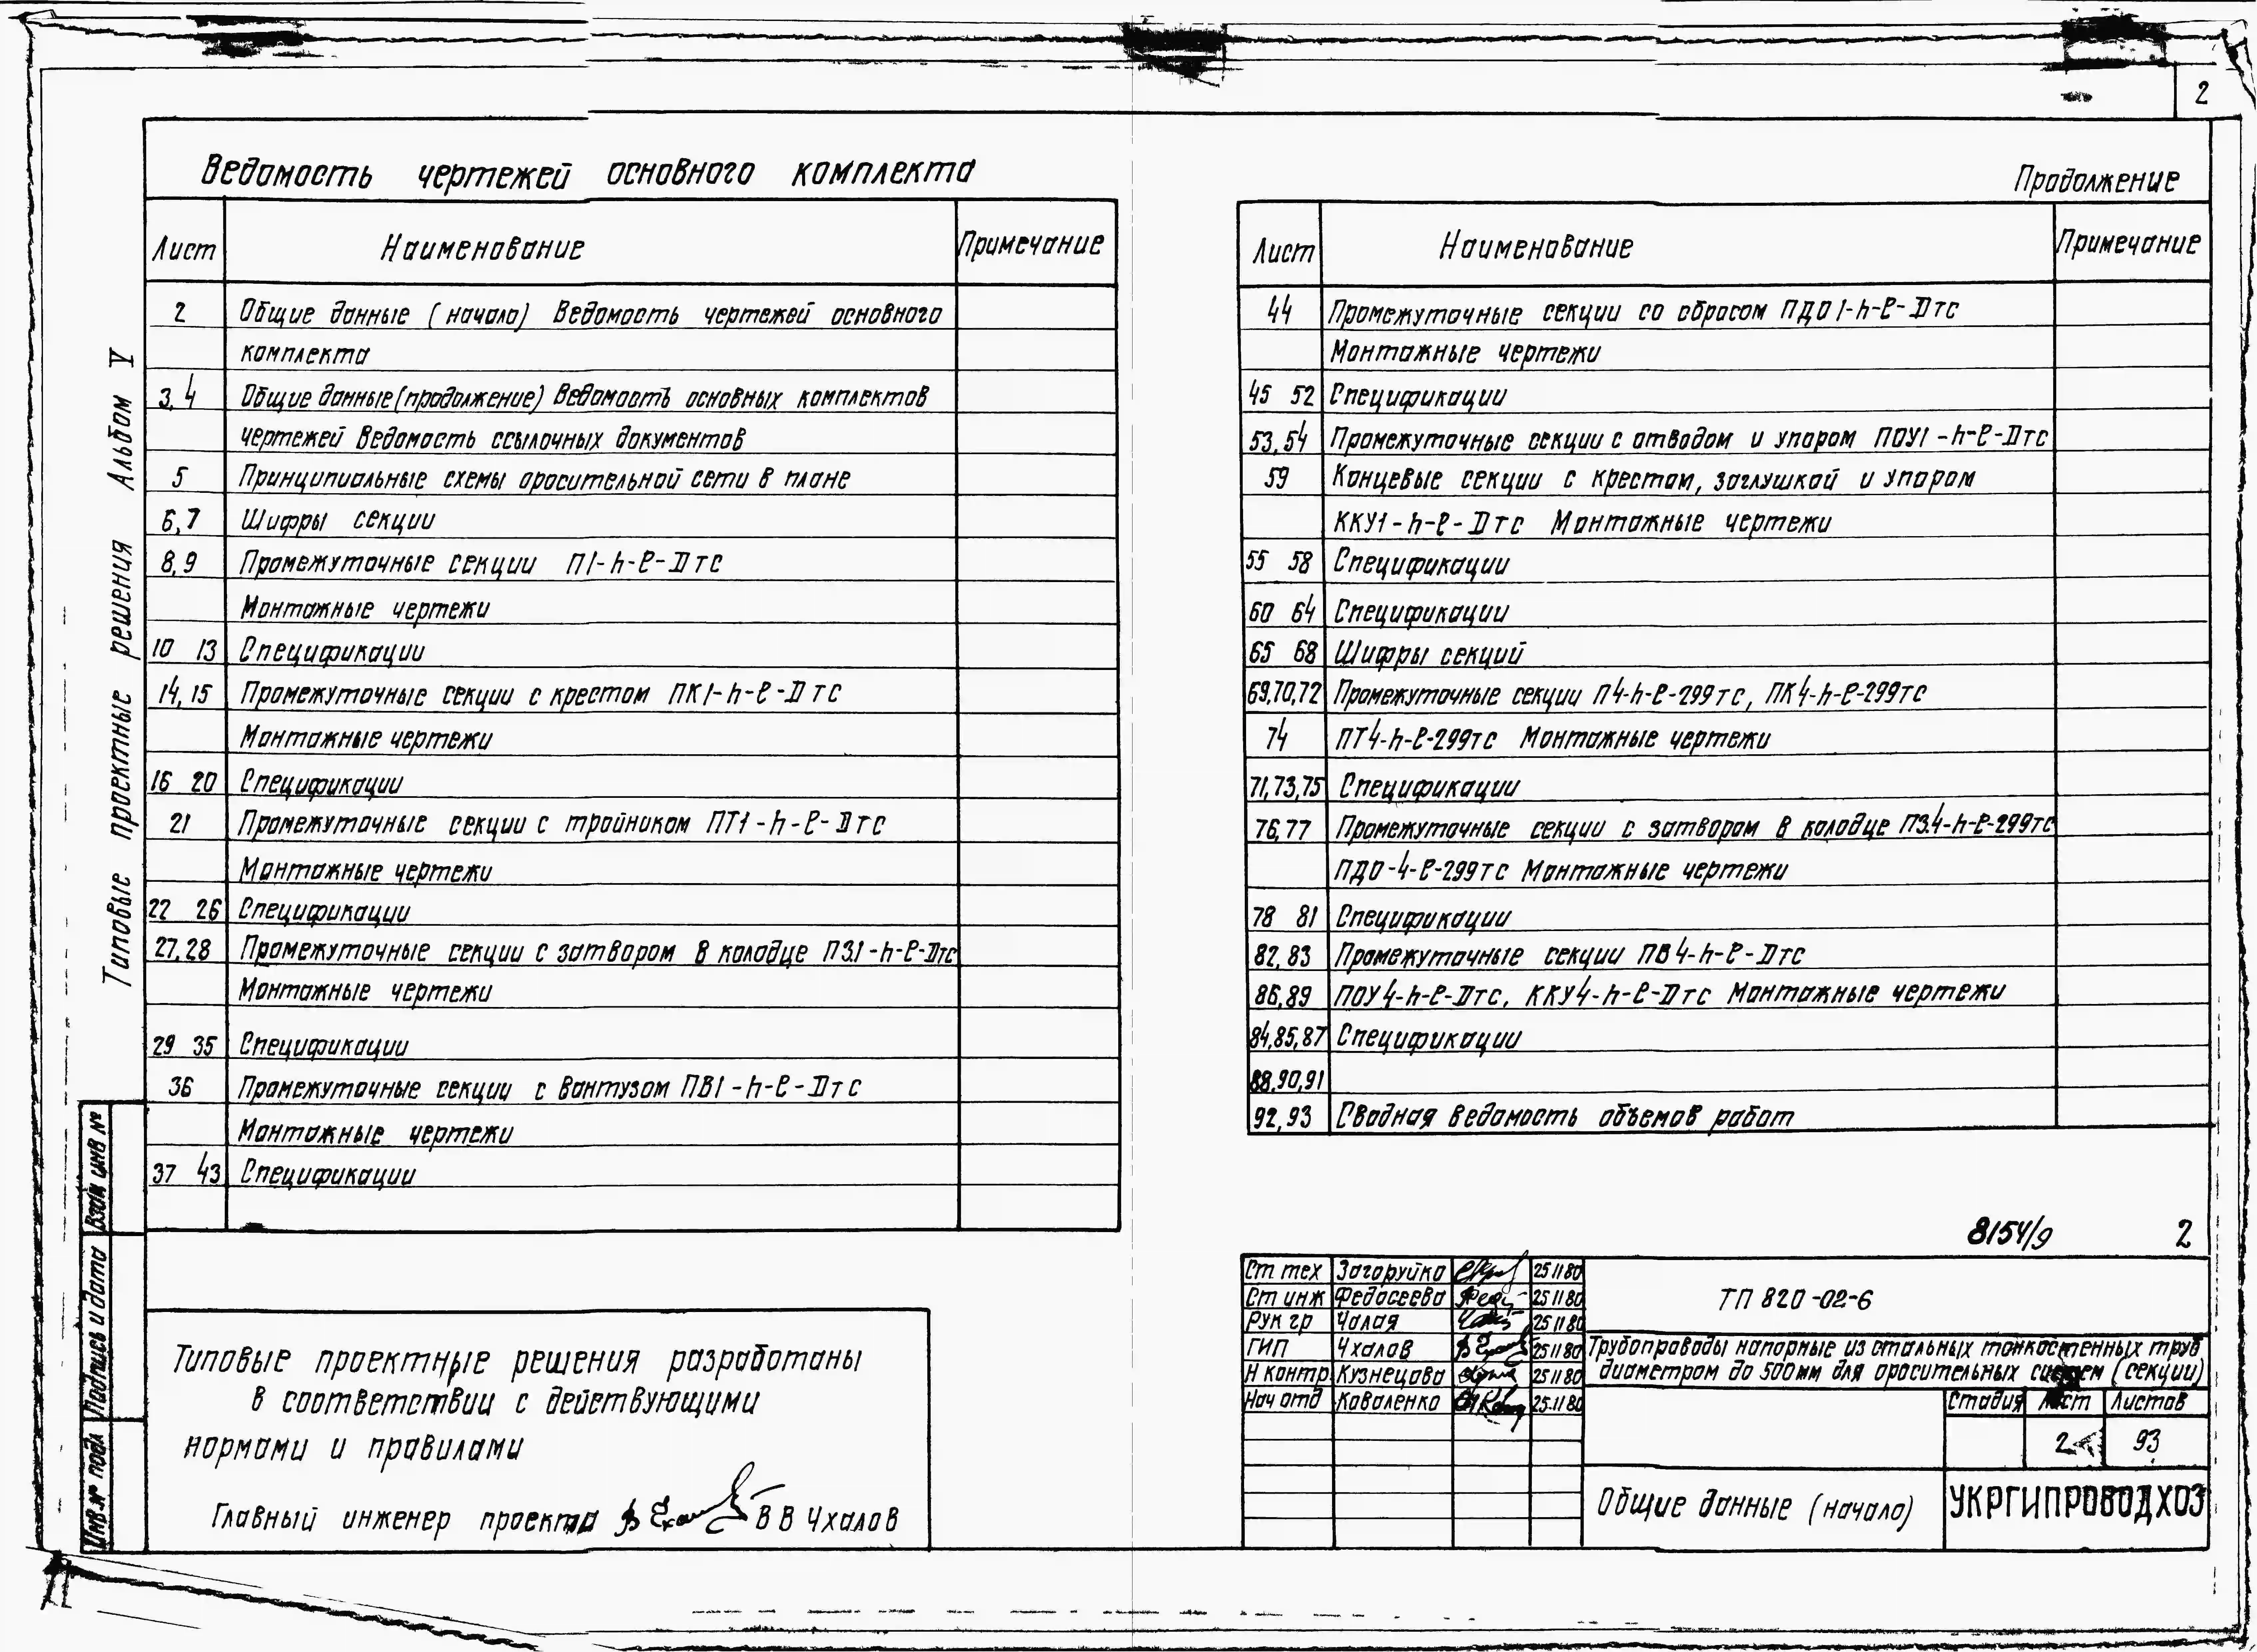 2
Ведомость чертежей основного комплекта
Лист Наименование Примечание
2 Общие данные (начало) Ведомость чертежей основного
комплекта
3,4 Общие данные (продолжение) Ведомость основных комплектов
чертежей Ведомость ссылочных документов
5 Принципиальные схемы оросительной сети в плане
6,7 Шифры секции
8,9 Промежуточные секции П1-h-ℓ-Dтс
Монтажные чертежи
10 13 Спецификации
14,15 Промежуточные секции с крестом ПК1-h-ℓ-Dтс
Монтажные чертежи
16 20 Спецификации
21 Промежуточные секции с тройником ПТ1-h-ℓ-Dтс
Монтажные чертежи
22 26 Спецификации
27,28 Промежуточные секции с затвором в колодце ПЗ1-h-ℓ-Dтс
Монтажные чертежи
29 35 Спецификации
36 Промежуточные секции с вантузом ПВ1-h-ℓ-Dтс
Монтажные чертежи
37 43 Спецификации
Продолжение
Лист Наименование Примечание
44 Промежуточные секции со сбросом ПДО1-h-ℓ-Dтс
Монтажные чертежи
45 52 Спецификации
53,54 Промежуточные секции с отводом и упором ПОУ1-h-ℓ-Dтс
59 Концевые секции с крестом, заглушкой и упором
ККУ1-h-ℓ-Dтс Монтажные чертежи
55 58 Спецификации
60 64 Спецификации
65 68 Шифры секций
69,70,72 Промежуточные секции П4-h-ℓ-299тс, ПК4-h-ℓ-299тс
74 ПТ4-h-ℓ-299тс Монтажные чертежи
71,73,75 Спецификации
76,77 Промежуточные секции с затвором в колодце ПЗ.4-h-ℓ-299тс
ПДО-4-ℓ-299тс Монтажные чертежи
78 81 Спецификации
82,83 Промежуточные секции ПВ4-h-ℓ-Dтс
86,89 ПОУ4-h-ℓ-Dтс, ККУ4-h-ℓ-Dтс Монтажные чертежи
84,85,87 Спецификации
88,90,91
92,93 Сводная ведомость объемов работ
Типовые проектные решения Альбом V
Взам инв №
Подпись и дата
Инв.№ подл
Типовые проектные решения разработаны
в соответствии с действующими
нормами и правилами
Главный инженер проекта В В Чхалов
8154/9 2
Ст тех Загоруйко 25 11 80
Ст инж Федосеева 25 11 80
Рук гр Чалая 25 11 80
ГИП Чхалов 25 11 80
Н контр Кузнецова 25 11 80
Нач отд Коваленко 25.11 80
ТП 820-02-6
Трубопроводы напорные из стальных тонкостенных труб
диаметром до 500мм для оросительных систем (секции)
Стадия Лист Листов
2 93
Общие данные (начало)
УКРГИПРОВОДХОЗ